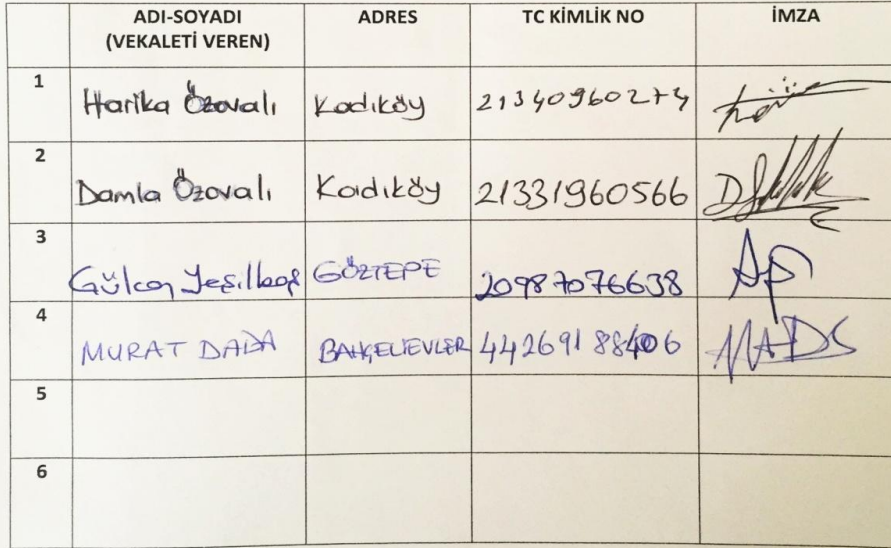 ADI-SOYADI (VEKALETİ VEREN) ADRES TC KİMLİK NO İMZA
1 Harika Özovalı Kadıköy 21340960274
2 Damla Özovalı Kadıköy 21331960566
3 Gülcan GÖZTEPE 20987076638
4 MURAT DADA BAHÇELİEVLER 44269188406
5
6